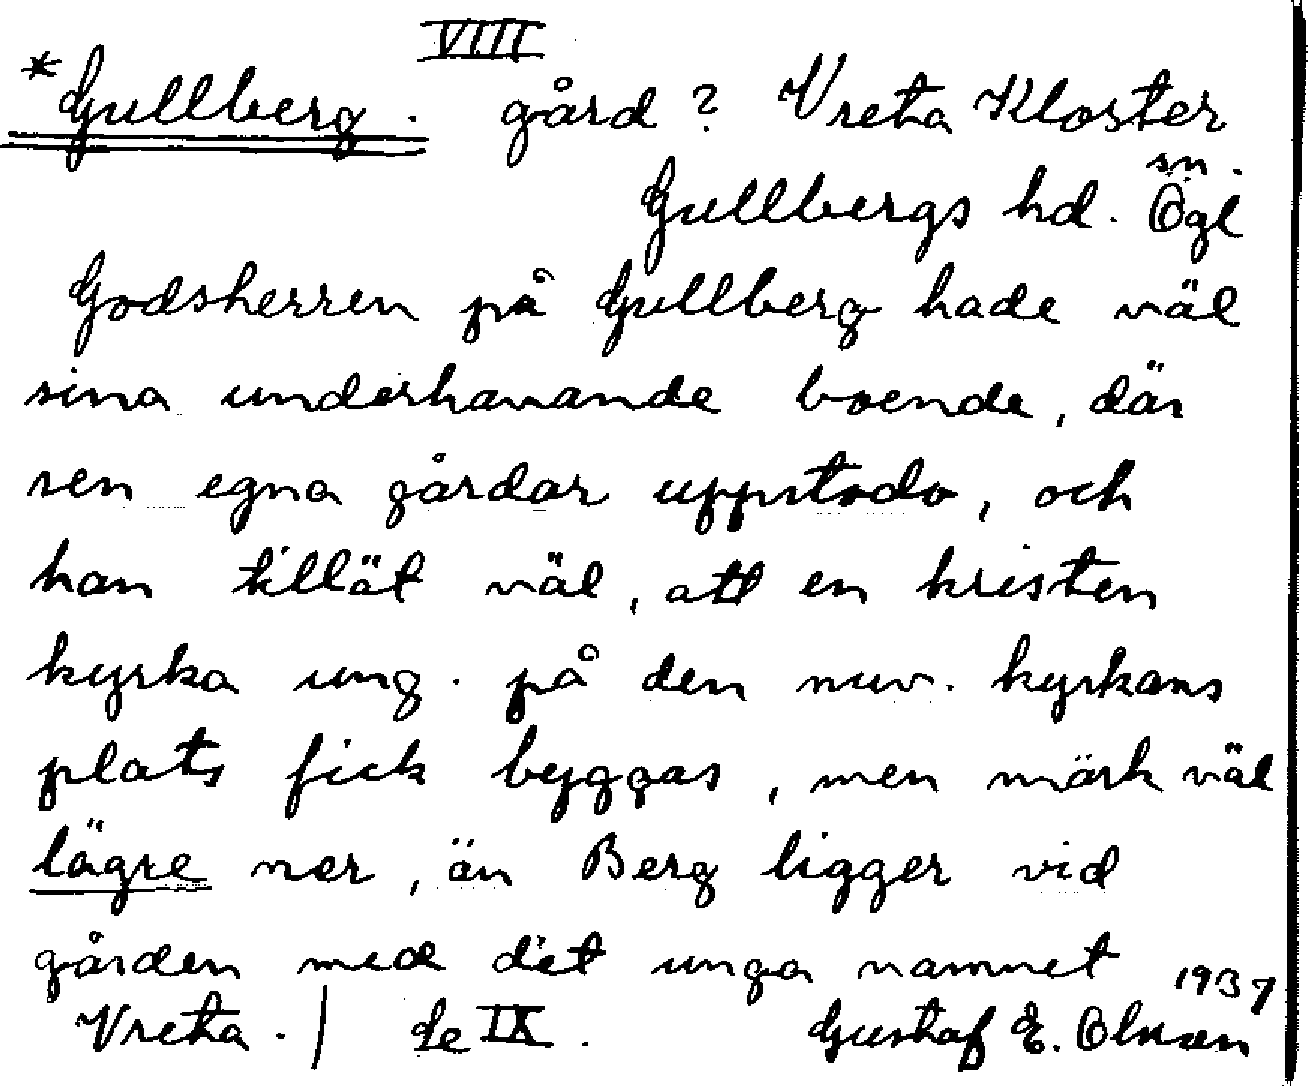 VIII
*Gullberg. gård? Vreta Kloster
sn.
Gullbergs hd. Ögl
Godsherren på Gullberg hade väl
sina underhavande boende, där
sen egna gårdar uppstodo, och
han tillät väl, att en kristen
kyrka ung. på den nuv. kyrkans
plats fick byggas, men märk väl
lägre ner, än Berg ligger vid
gården med det unga namnet
1937
Vreta. | Se IX. Gustaf E. Olsson